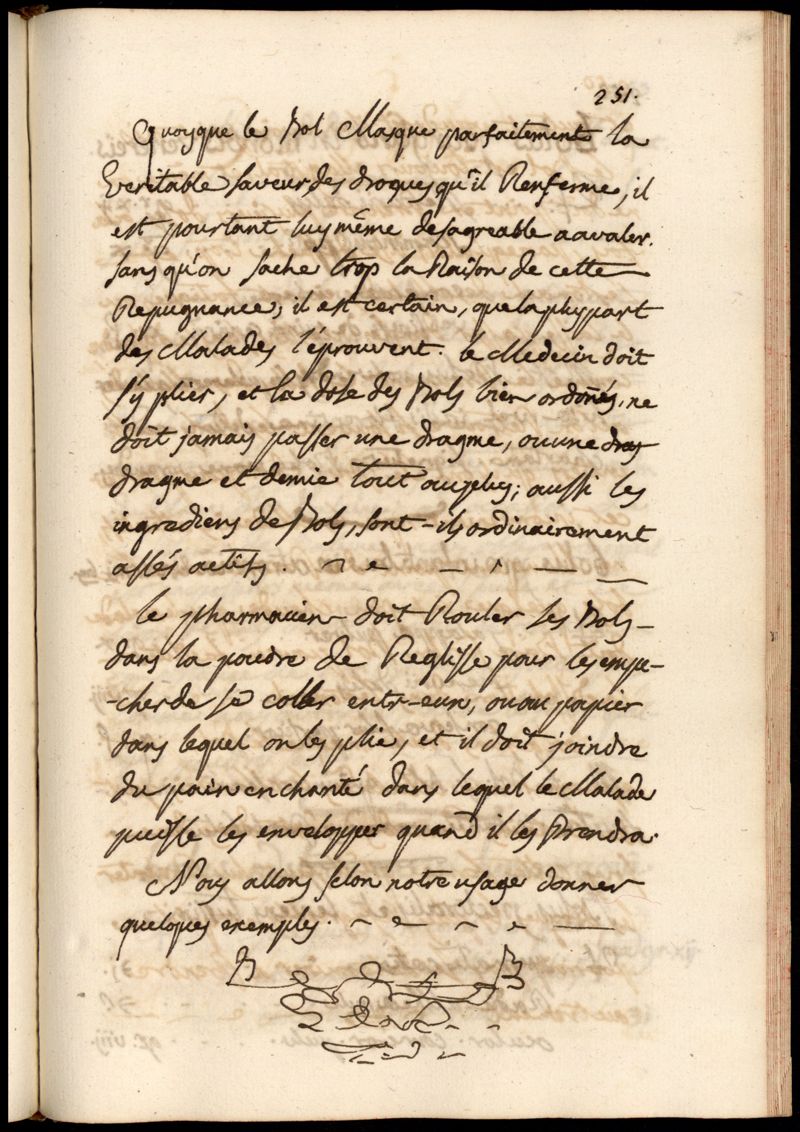 251.
Quoyque le Bol Masque parfaitement la
Veritable saveur des drogues qu'il Renferme, il
est pourtant luy même desagreable a avaler.
sans qu'on sache trop la Raison de cette
Repugnance, il est certain, que la pluspart
des Malades l'éprouvent. le Medecin doit
s'y plier, et la dose des Bols bien ordonés, ne
doit jamais passer une dragme, ou une drag
dragme et demie tout au plus; aussi les
ingrediens de Bols, sont-ils ordinairement
assés actifs.
Le pharmacien doit Rouler ses Bols
dans la poudre de Reglisse pour les empe-
-cher de se coller entr-eux, ou au papier
dans lequel on les plie, et il doit joindre
du pain enchanté dans lequel le Malade
puisse les envelopper quand il les Prendra.
Nous allons selon notre usage donner
quelques exemples.